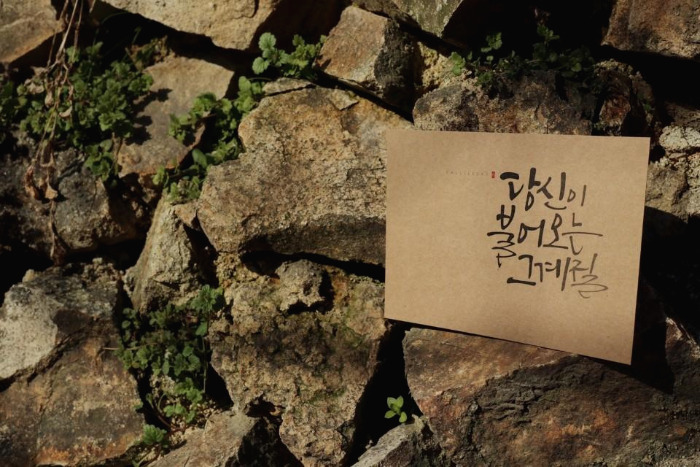 당신이
불어오는
그계절